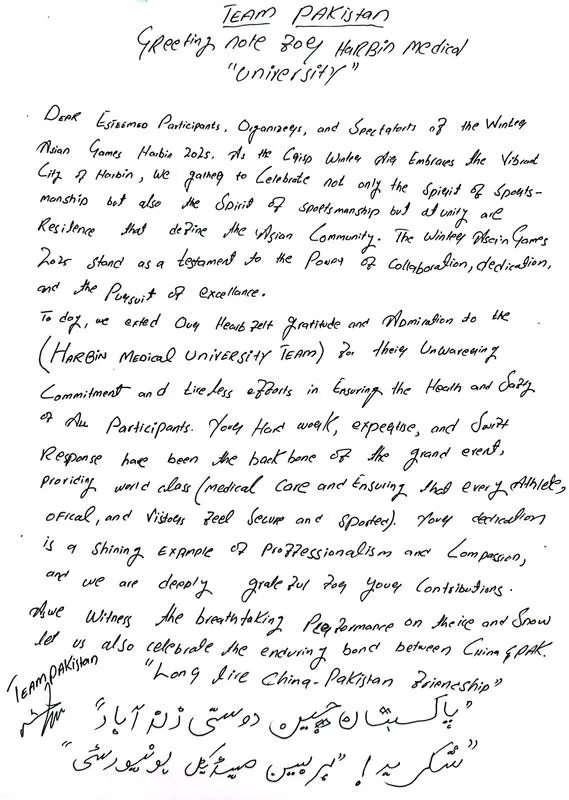 TEAM PAKistan
Greeting note foer HARBIN Medical
"University"
DEAR ESTEEMED Participants, Organizers, and Spectatorts of the Winter
Asian Games Harbin 2025. As the Crisp Winter Air Embraces the Vibrant
City of Harbin, we gather to Celebrate not only the Spirit of Sports-
manship but also the Spirit of sportsmanship but at unity are
Resilence that define the Asian Community. The Winter Asain Games
2025 stand as a testament to the Power of Collaboration, dedication,
and the Pursuit of excellance.
To day, we exted Our Heart felt gratitude and Admiration to the
(HARBIN MEDICAL UNIVERSITY TEAM) for their Unwavering
Commitment and tireless efforts in Ensuring the Health and Safty
of All Participants. Your Hard work, expertise, and Swift
Response have been the back bone of the grand event,
Providing world class (medical Care and Ensuring that every Athlete,
Offical, and Vistors feel Secure and Sported). Your dedication
is a Shining EXAMPLE of Proffessionalism and Compassion,
and we are deeply grateful for your Contributions.
As we Witness the breathtaking Performance on the ice and Snow
let us also celebrate the enduring bond between China & PAK.
TEAM PAKistan
"Long live China-Pakistan friendship"
"پاکستان چین دوستی زندہ آباد"
"شکریہ! "ہربین میڈیکل یونیورسٹی"